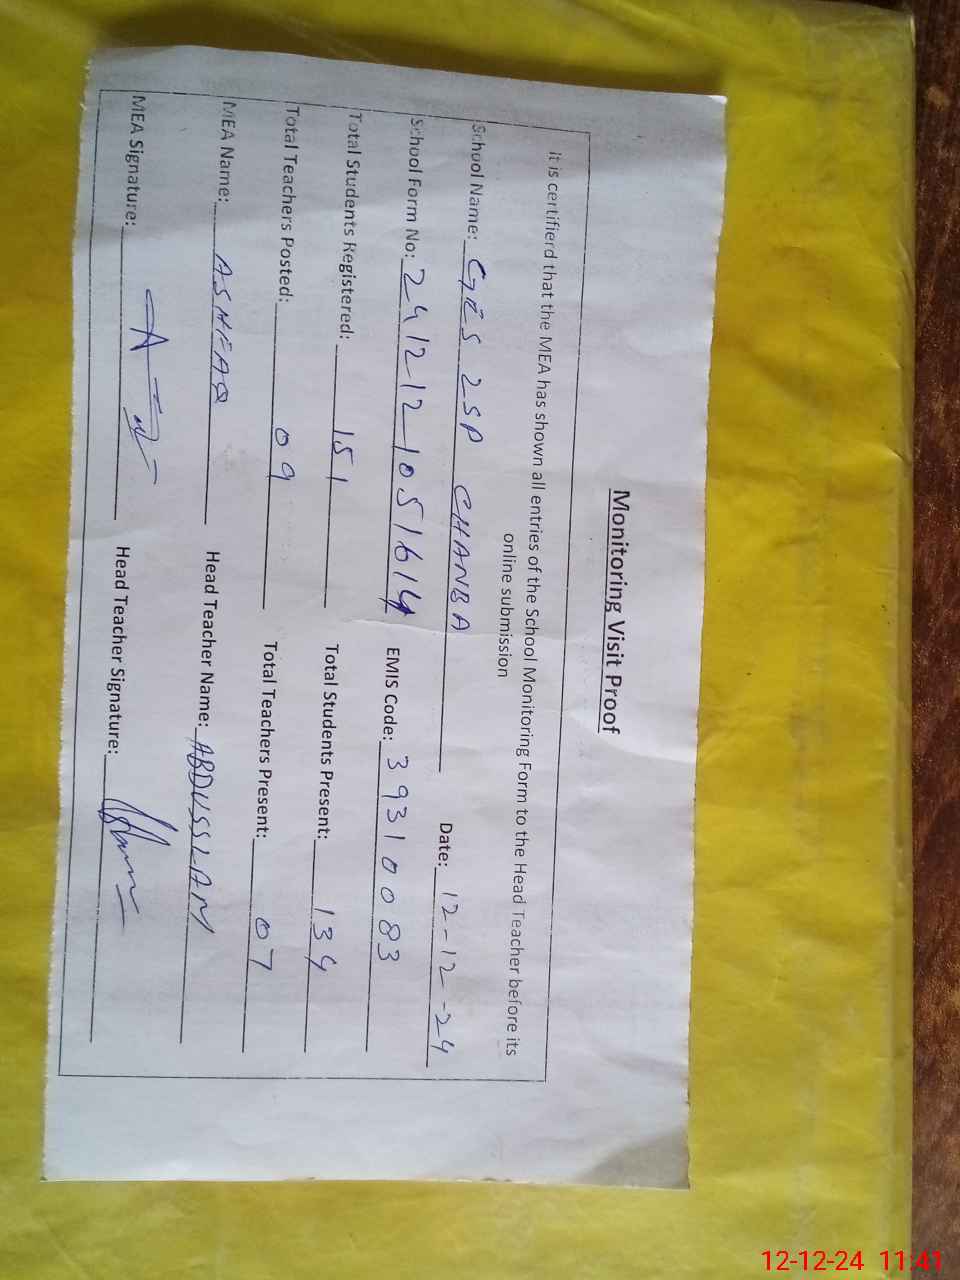 Monitoring Visit Proof
It is certifierd that the MEA has shown all entries of the School Monitoring Form to the Head Teacher before its
online submission
School Name: GES 2SP CHANBA Date: 12-12-24
School Form No: 2412121051614 EMIS Code: 39310083
Total Students Registered: 151 Total Students Present: 134
Total Teachers Posted: 09 Total Teachers Present: 07
MEA Name: ASHFAQ Head Teacher Name: ABDUSSLAM
MEA Signature: Head Teacher Signature:
12-12-24 11:41